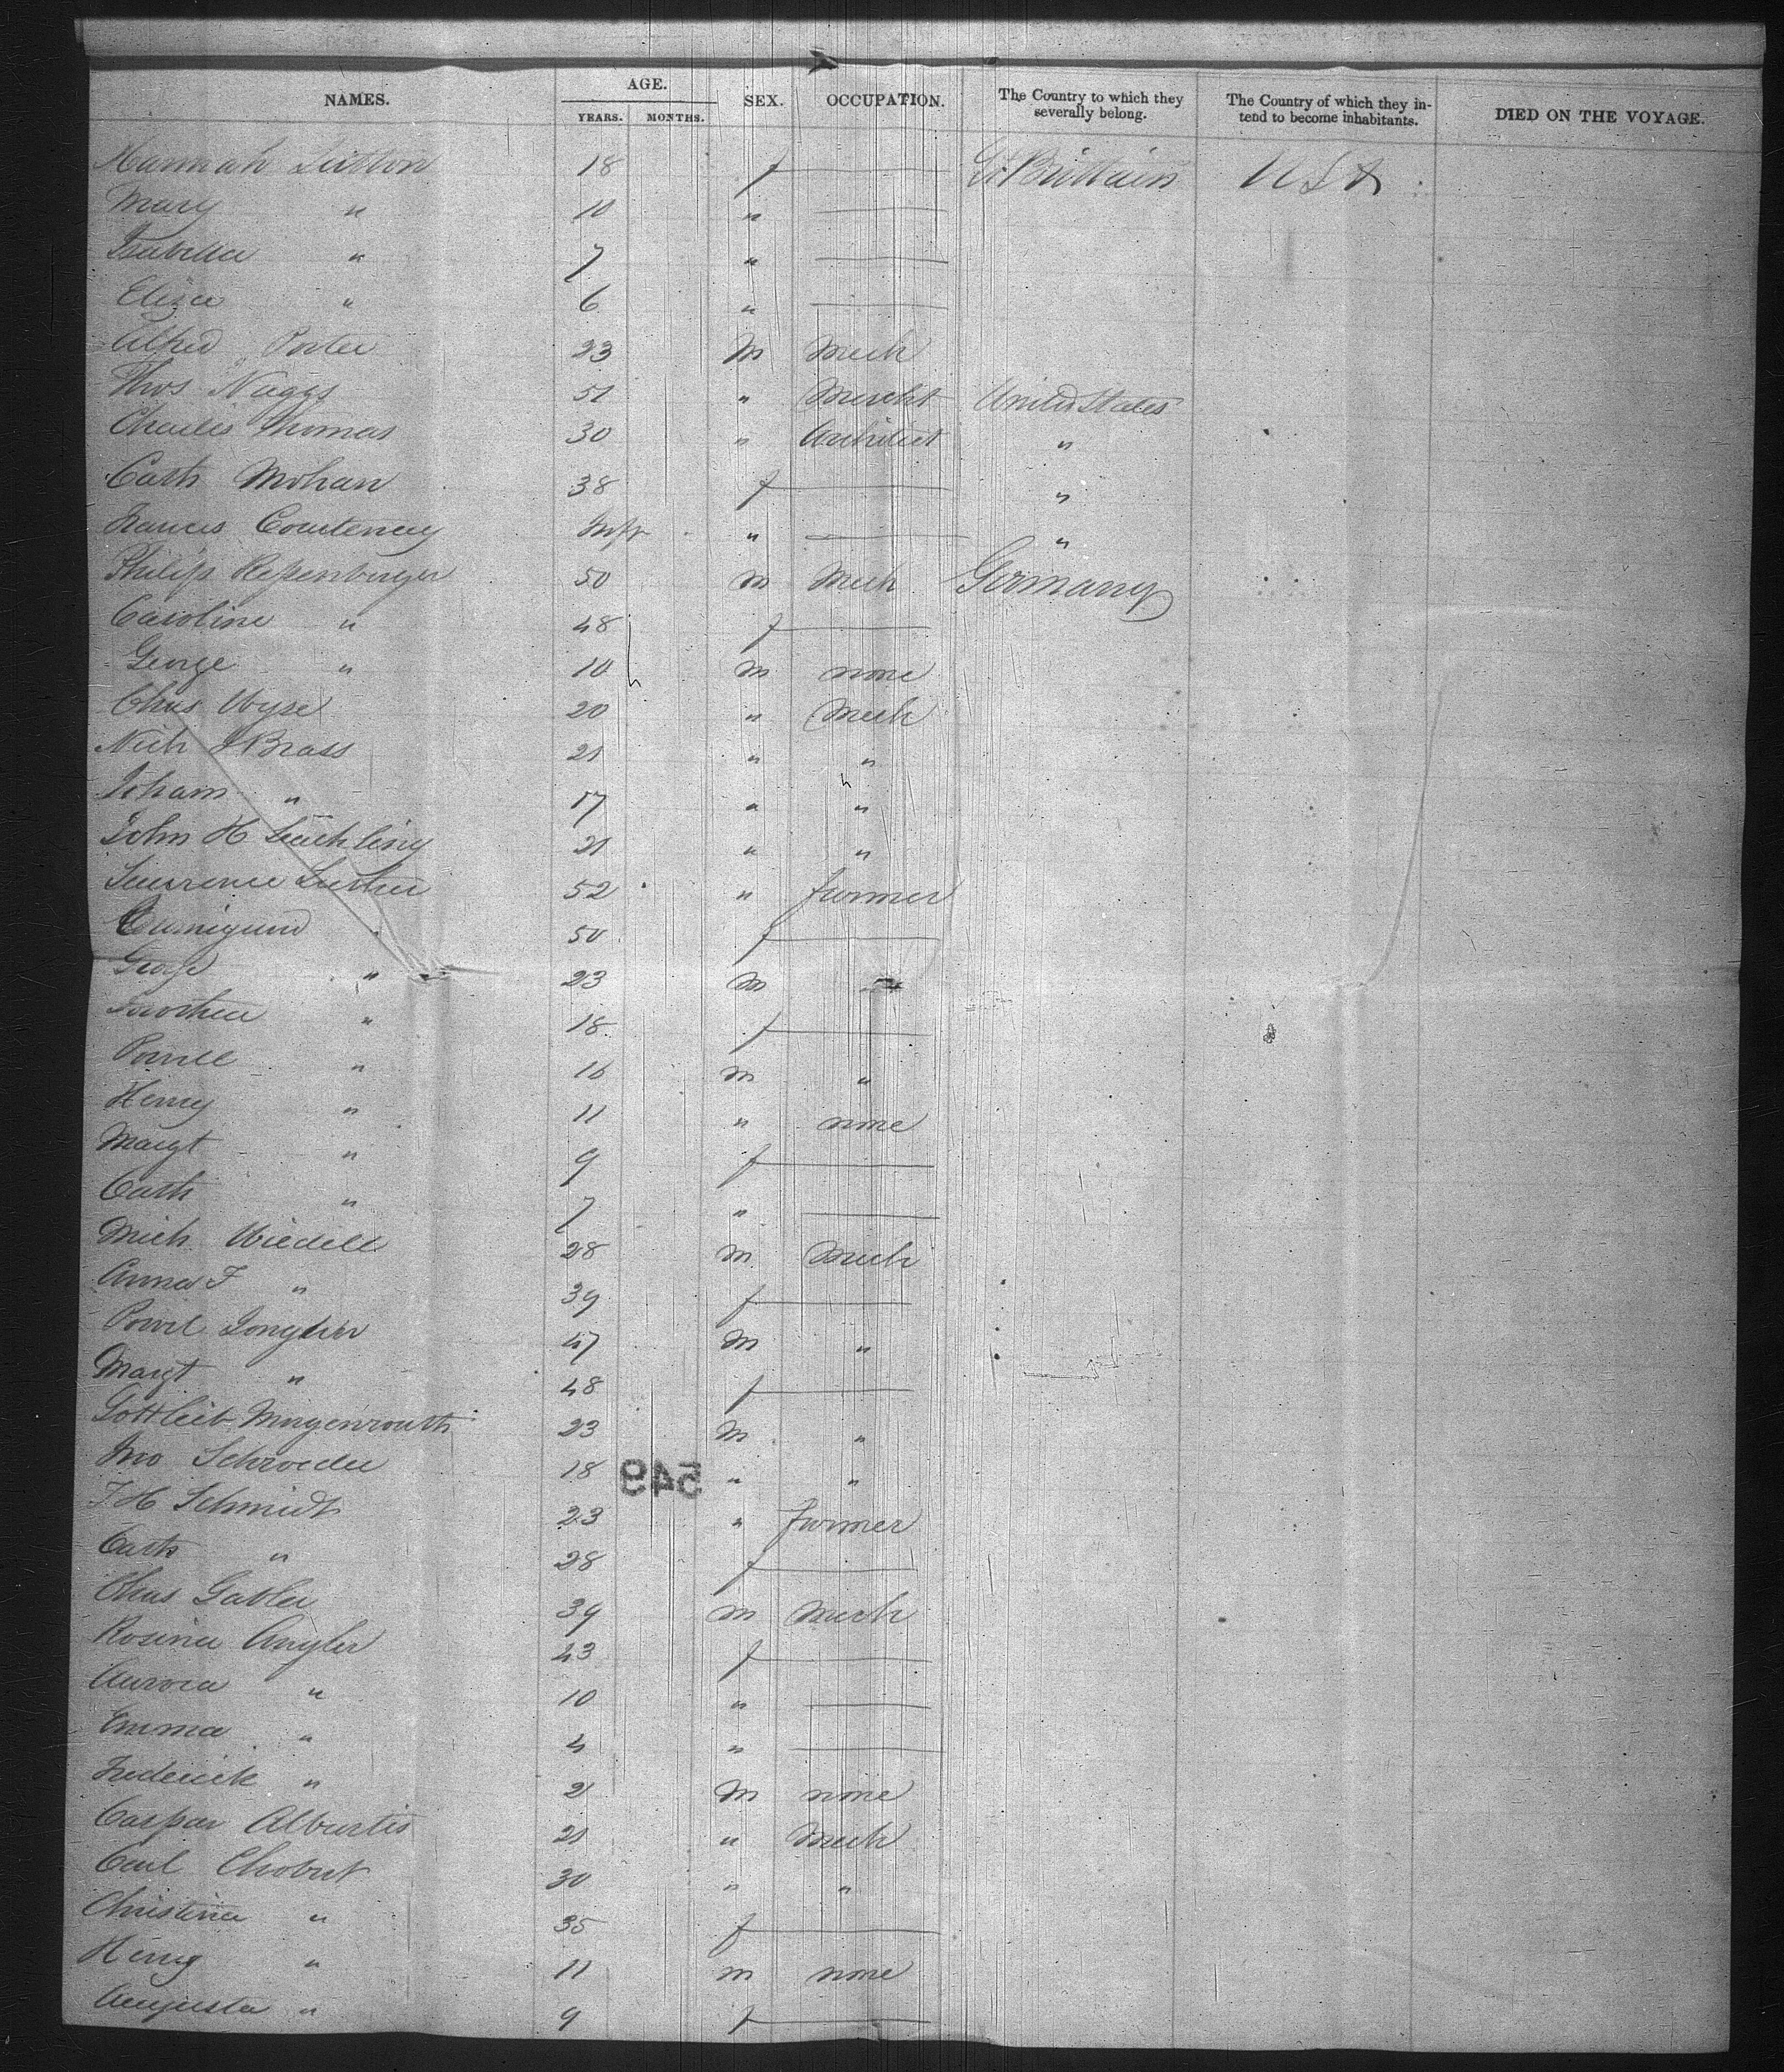 NAMES. AGE. YEARS. MONTHS. SEX. OCCUPATION. The Country to which they severally belong. The Country of which they intend to become inhabitants. DIED ON THE VOYAGE.
Hannah Sutton 18 f — Gt Brittain U S A
Mary " 10 " —
Isabella " 7 " —
Eliza " 6 " —
Alfred Porter 23 m Mech
Thos Naggs 51 " Mercht United States
Charles Thomas 30 " Architect "
Cath Mohan 38 f — "
Frances Courtenay Inft " — "
Philip 50 m Mech Germany
Caroline " 48 f —
George " 10 m none
Chas Wyse 20 " Mech
Nich J Brass 21 " "
Johann " 17 " "
John H 21 " "
Lawrence 52 " farmer
Cunnigund " 50 f —
George " 23 m "
Dorothea " 18 f —
" 16 m "
Henry " 11 " none
Margt " 9 f —
Cath " 7 " —
Mich Wiedell 28 m Mech
Anna F " 39 f —
47 m "
Margt " 48 f —
Gottleib 23 m "
Jno Schroeder 18 " "
549
J H Schmidt 23 " farmer
Cath " 28 f —
Chas Gabler 39 m Mech
Rosina Angler 43 f —
Aurora " 10 " —
Emma " 4 " —
Frederick " 2 m none
Caspar Alburtis 21 " Mech
Carl Chobert 30 " "
Christina " 35 f —
Henry " 11 m none
Augusta " 9 f —